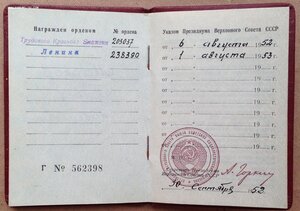 Награжден орденом
№ ордена
Трудового Красного Знамени
205057
Ленина
238390
Г № 562398
Указом Президиума Верховного Совета СССР
от 6 августа 1952 г.
от 1 августа 1953 г.
от 19 г.
от 19 г.
от 19 г.
от 19 г.
от 19 г.
от 19 г.
30 сентября 52